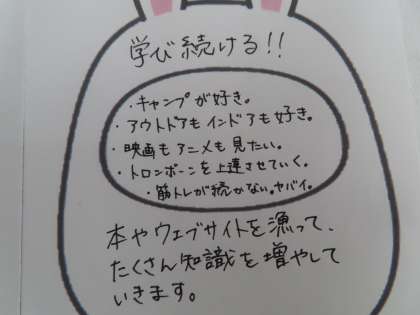 学び続ける!!
・キャンプが好き。
・アウトドアもインドアも好き。
・映画もアニメも見たい。
・トロンボーンを上達させていく。
・筋トレが続かない。ヤバイ。
本やウェブサイトを漁って、
たくさん知識を増やして
いきます。